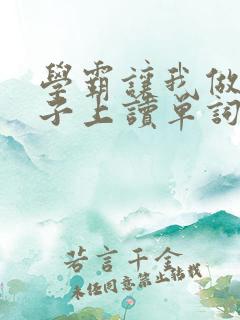 學霸讓我做
子上讀單詞
若言千金
未经同意禁止转载